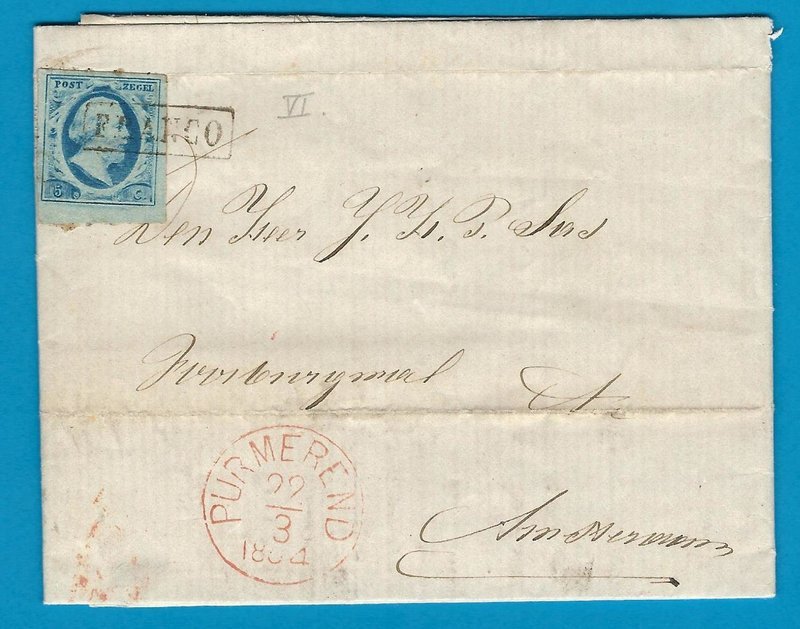 POST ZEGEL
FRANCO
5 C.
VI
Den Heer J. H. P. Sas
Te
Amsterdam
PURMEREND
22
3
1854